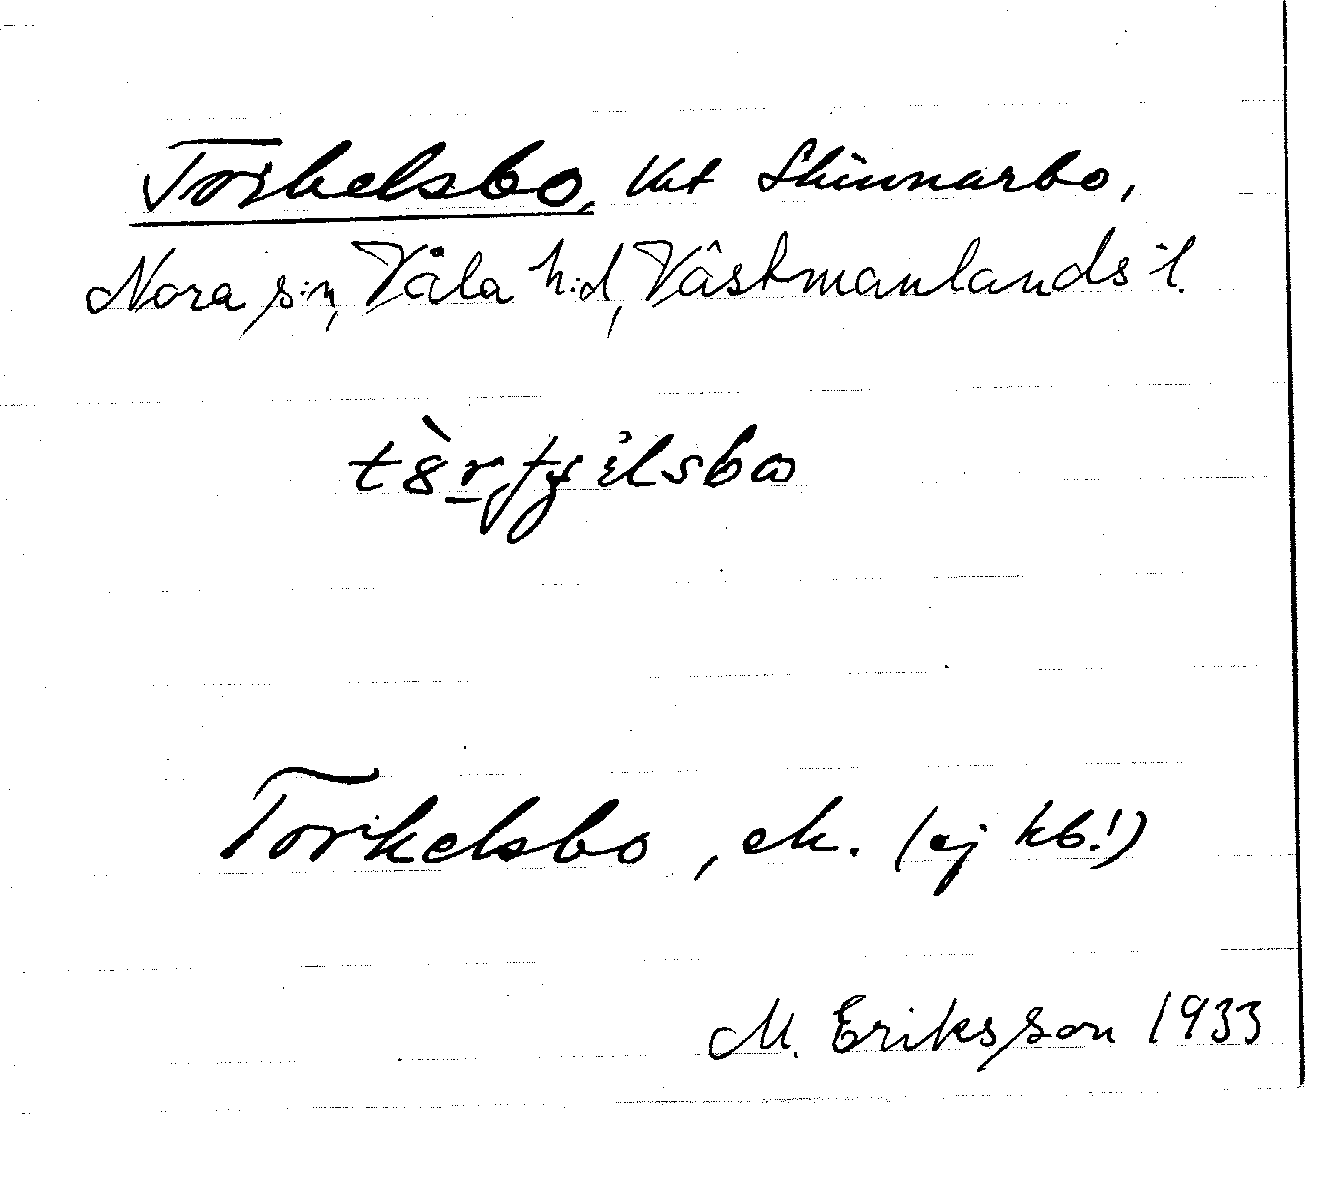 Torkelsbo, kkt Skinnarbo,
Nora s:n, Våla h:d, Västmanlands l.
Torkelsbo, ek. (ej kb!)
M. Eriksson 1933